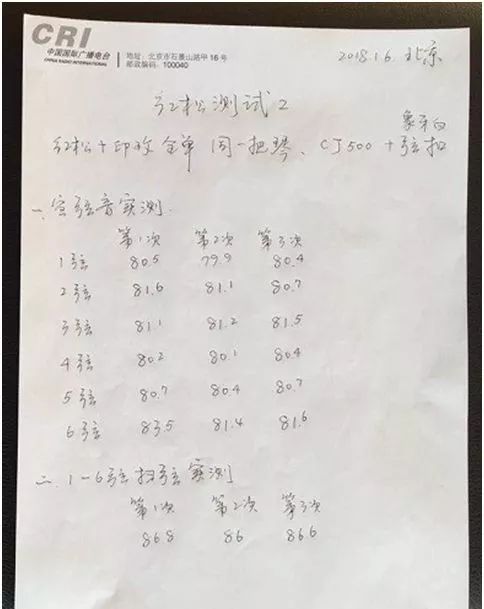 CRI
中国国际广播电台
CHINA RADIO INTERNATIONAL
地址：北京市石景山路甲16号
邮政编码：100040
2018.1.6. 北京
红松测试2
象牙白
红松+印玫 全单 同一把琴、CJ500+弦扣
一、空弦音实测
第1次 第2次 第3次
1弦 80.5 79.9 80.4
2弦 81.6 81.1 80.7
3弦 81.1 81.2 81.5
4弦 80.2 80.1 80.4
5弦 80.7 80.4 80.7
6弦 83.5 81.4 81.6
二、1-6弦扫弦实测
第1次 第2次 第3次
86.8 86 86.6